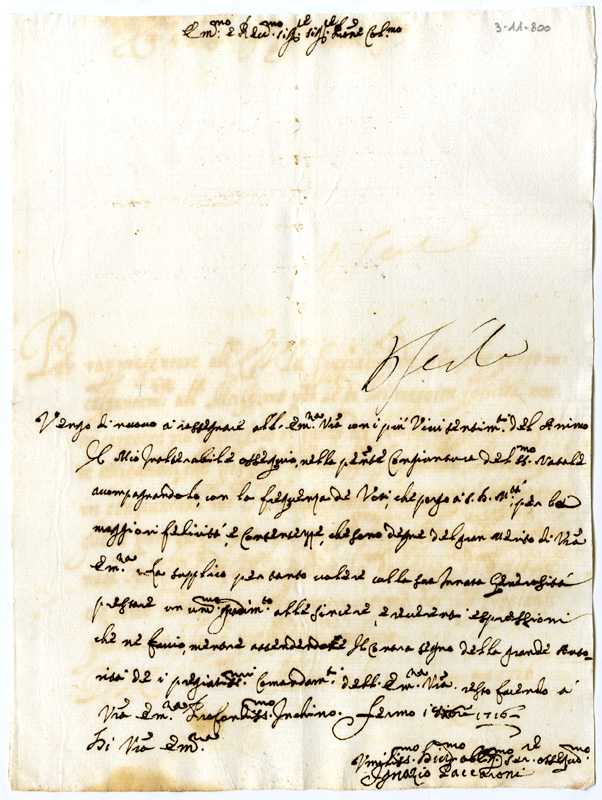 Em.mo e Rev.mo Sig.re Sig.re Prone Col.mo
3-11-800
Vengo di nuovo a rassegnare all'Em.za Vra con i più Vivi sentim.ti del Animo
Il Mio Inalterabile ossequio, nella pñte Congiuntura del SS.mo Natale
acompagnandolo, con la frequenza de Voti, che porgo a S. D. M.tà per le
maggiori felicità, e Contentezze, che sono degne del gran Merito di Vra
Em.za. La supplico per tanto volere colla sua Innata Generosità
prestare un um.mo gradim.to alle sincere, e reverenti espressioni
che ne faccio, mentre attendendone Il Contra segno della grande Auto-
rità de i pregiatiss.mi Comandam.ti dell'Em.za Vra resto facendo à
Vra Em.za Profondiss.mo Inchino. Fermo 1716
Di Vra Em.za
Umiliss.mo Ser. osseq.mo
Ignazio Paccaroni